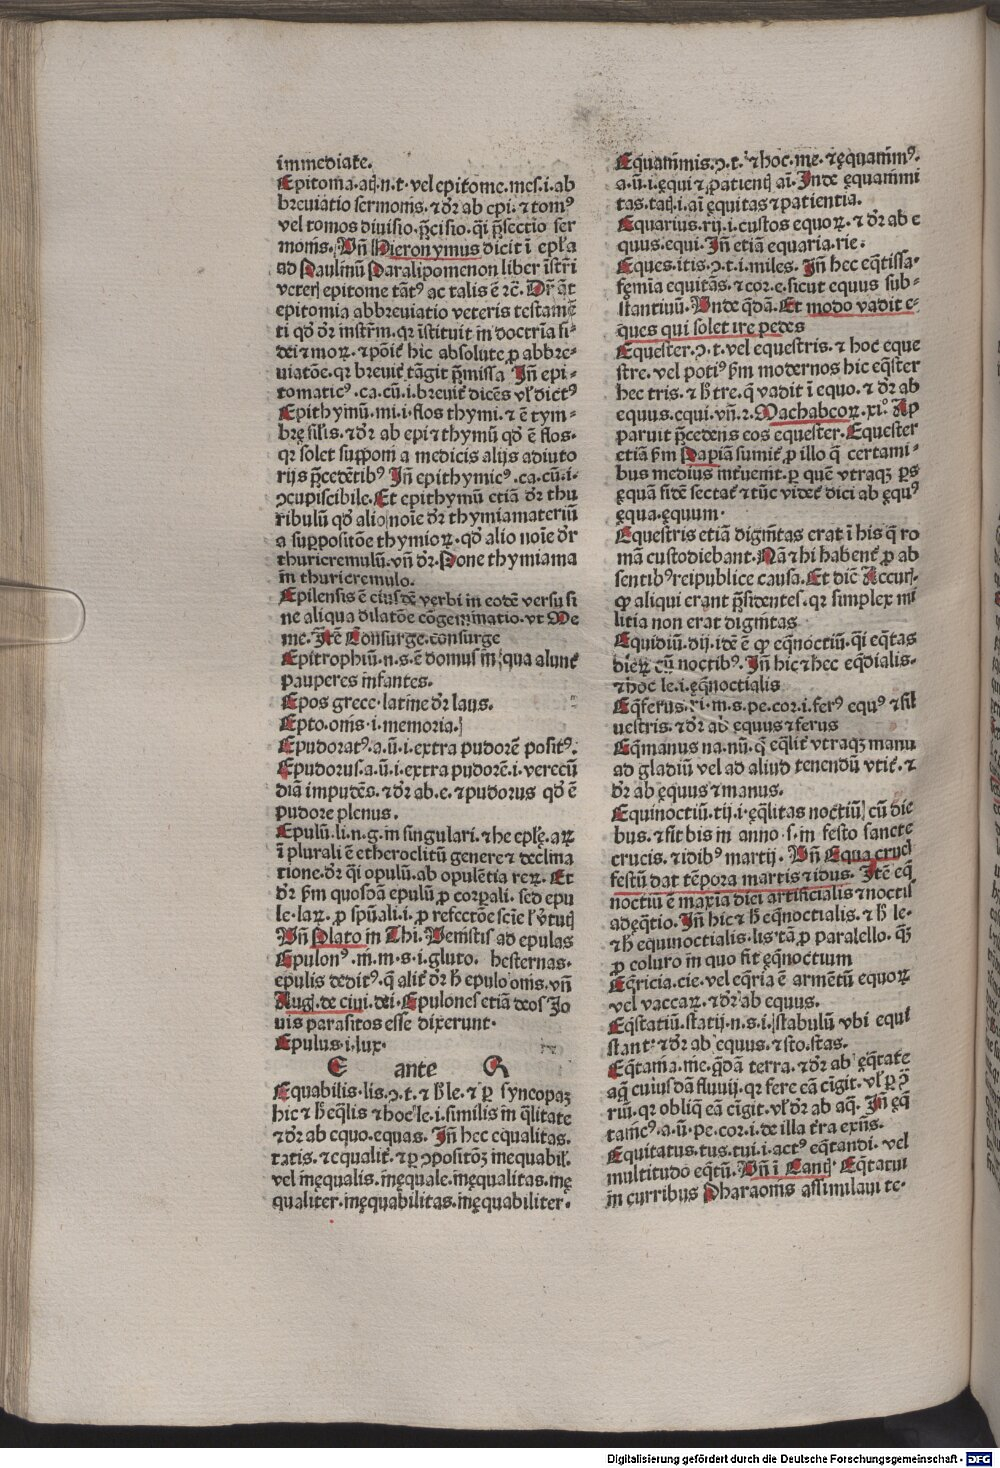 immediate.
Epitoma.atꝭ.n.t. vel epitome.mes.i.ab
breuiatio sermonis.⁊ dr̄ ab epi.⁊ tomꝰ
vel tomos diuisio.p̄cisio.q̄i p̄sectio ser
monis. Vn̄ Hieronymus dicit ī ep̄la
ad Paulinū Paralipomenon liber īstr̄i
veterꝭ epitome tātꝰ ac talis ē ⁊c̄. Dr̄ q̄t
epitomia abbreuiatio veteris testamē
ti qd̓ dr̄ instr̄m.qr īstituit in doctrīa fi-
dei ⁊ moꝝ.⁊ pōit̄ hic absolute ꝓ abbre-
uiatōe.qr breuit̄ tāgit p̄missa In̄ epi-
tomaticꝰ.ca.cū.i.breuit̄ dicēs vl̓ dictꝰ
Epithymū.mi.i flos thymi.⁊ ē tym-
brę silis.⁊ dr̄ ab epi ⁊ thymū qd̓ ē flos.
qr solet supponi a medicis alijs adiuto
rijs p̄cedētibꝰ In̄ epithymicꝰ.ca.cū.i.
ↄcupiscibile.Et epithymū etiā dr̄ thu
ribulū qd̓ alio noīe dr̄ thymiamateriū
a suppositōe thymioꝝ.qd̓ alio noīe dr̄
thuricremulū.vn̄ dr̄.Pone thymiama
in thuricremulo.
Epilensis ē eiusdē verbi in eodē versu si
ne aliqua dilatōe cōgeminatio.vt Me
me. Itē Consurge.consurge
Epitrophiū.n.s.ē domus in qua alunt̄
pauperes infantes.
Epos grece.latine dr̄ laus.
Epto.onis.i.memoria.
Epudoratꝰ.a.ū.i.extra pudorē positꝰ.
Epudorus.a.ū.i.extra pudorē.i.verecū
diā impudēs.⁊ dr̄ ab.e.⁊ pudorus qd̓ ē
pudore plenus.
Epulū.li.n.g.in singulari.⁊ he eplę.aꝝ
ī plurali ē etheroclitū genere ⁊ declina
tione.dr̄ q̄i opulū.ab opulētia reꝝ. Et
dr̄ ẜm quosdā epulū ꝓ corpali. sed epu
le.laꝝ. ꝓ sp̄uali.i.ꝓ refectōe scīe l̓ v̓tutꝭ
Vn̄ Plato in Thi. Venistis ad epulas
Epulonꝰ.ni.m.s.i.gluto. hesternas.
epulis deditꝰ.q̄ alit̄ dr̄ h̄ epulo onis.vn̄
Aug.de ciui.dei.Epulones etiā deos Jo
uis parasitos esse dixerunt.
Epulus.i.lux.
E ante Q
Equabilis.lis.ↄ.t.⁊ h̄ le.⁊ ꝑ syncopaꝫ
hic ⁊ h̄ eq̄lis ⁊ hoc le.i.similis in q̄litate
⁊ dr̄ ab equo.equas. In̄ hec equalitas.
tatis.⁊ equalit̄.⁊ ꝑ ↄpositōꝫ inequabil̓.
vel inęqualis.inęquale.inęqualitas.inę
qualiter.inęquabilitas.inęquabiliter.
Equanimis.ↄ.t.⁊ hoc.me.⁊ ęquanimꝰ.
a.ū.i.ęqui ⁊ patientꝭ aī. Inde ęquanimi
tas.tatꝭ.i.aī ęquitas ⁊ patientia.
Equarius.rij.i.custos equoꝝ.⁊ dr̄ ab e
quus.equi. In̄ etiā equaria.rie.
Eques.itis.ↄ.t.i.miles. In̄ hec eq̄tissa.
fęmīa equitās.⁊ cor.e.sicut equus sub-
stantiuū. Vnde q̄dā. Et modo vadit e-
ques qui solet ire pedes
Equester.ↄ.t.vel equestris.⁊ hoc eque
stre. vel potiꝰ ẜm modernos hic eq̄ster
hec tris.⁊ h̄ tre.q̄ vadit ī equo.⁊ dr̄ ab
equus.equi.vn̄.2.Machabeoꝝ.xi°. Ap
paruit p̄cedens eos equester.Equester
etiā ẜm Papiā sumit̄ ꝓ illo q̄ certami-
bus medius int̓uenit.ꝑ quē vtraqꝫ ꝑs
ęquā fidē sectat̄ ⁊ tūc videt̄ dici ab ęquꝰ
ęqua.ęquum.
Equestris etiā dignitas erat ī his q̄ ro
mā custodiebant. Nā ⁊ hi habent̄ ꝓ ab
sentibꝰ reipublice causa. Et dic̄ Accurꝭ.
ꝙ aliqui erant p̄sidentes.qr simplex mi
litia non erat dignitas
Equidiū.dij.idē ē ꝙ eq̄noctiū.q̄i eq̄tas
dierꝝ cū noctibꝰ. In̄ hic ⁊ hec eq̄dialis.
⁊ hoc le.i.ęq̄noctialis
Eq̄ferus.ri.m.s.pe.cor.i.ferꝰ equꝰ ⁊ sil
uestris.⁊ dr̄ ab equus ⁊ ferus
Eq̄manus na.nū.q̄ eq̄lit̄ vtraqꝫ manu
ad gladiū vel ad aliud tenendū vtit̄.⁊
dr̄ ab ęquus ⁊ manus.
Equinoctiū.tij.i.ęq̄litas noctiū cū die
bus.⁊ fit bis in anno.s.in festo sancte
crucis.⁊ idibꝰ martij. Vn̄ Equa cruc̄
festū dat tēpora martis ⁊ idus. Itē eq̄
noctiū ē maxīa diei artificialis ⁊ noctis
adeq̄tio. In̄ hic ⁊ h̄ eq̄noctialis.⁊ h̄ le.
⁊ h̄ equinoctialis.lis.tā ꝓ paralello.q̄ꝫ
ꝓ coluro in quo fit ęq̄noctium
Eq̄ricia.cie.vel eq̄ria ē armētū equoꝝ
vel vaccaꝝ.⁊ dr̄ ab equus.
Eq̄statiū.statij.n.s.i.stabulū vbi equi
stant.⁊ dr̄ ab equus.⁊ sto.stas.
Eq̄tania.nie.q̄dā terra.⁊ dr̄ ab ęq̄tate
aq̄ cuiusdā fluuij.qr fere eā cīgit.vl̓ ꝑ ↄ̄
riū.qr obliq̄ eā cīgit.vl̓ dr̄ ab aq̄. In̄ ęq̄
tanicꝰ.a.ū.pe.cor.i.de illa t̓ra exn̄s.
Equitatus.tus.tui.i.actꝰ eq̄tandi. vel
multitudo eq̄tū. Vn̄ ī Cantꝭ. Eq̄tatui
in curribus Pharaonis assimilaui te.
Digitalisierung gefördert durch die Deutsche Forschungsgemeinschaft - DFG